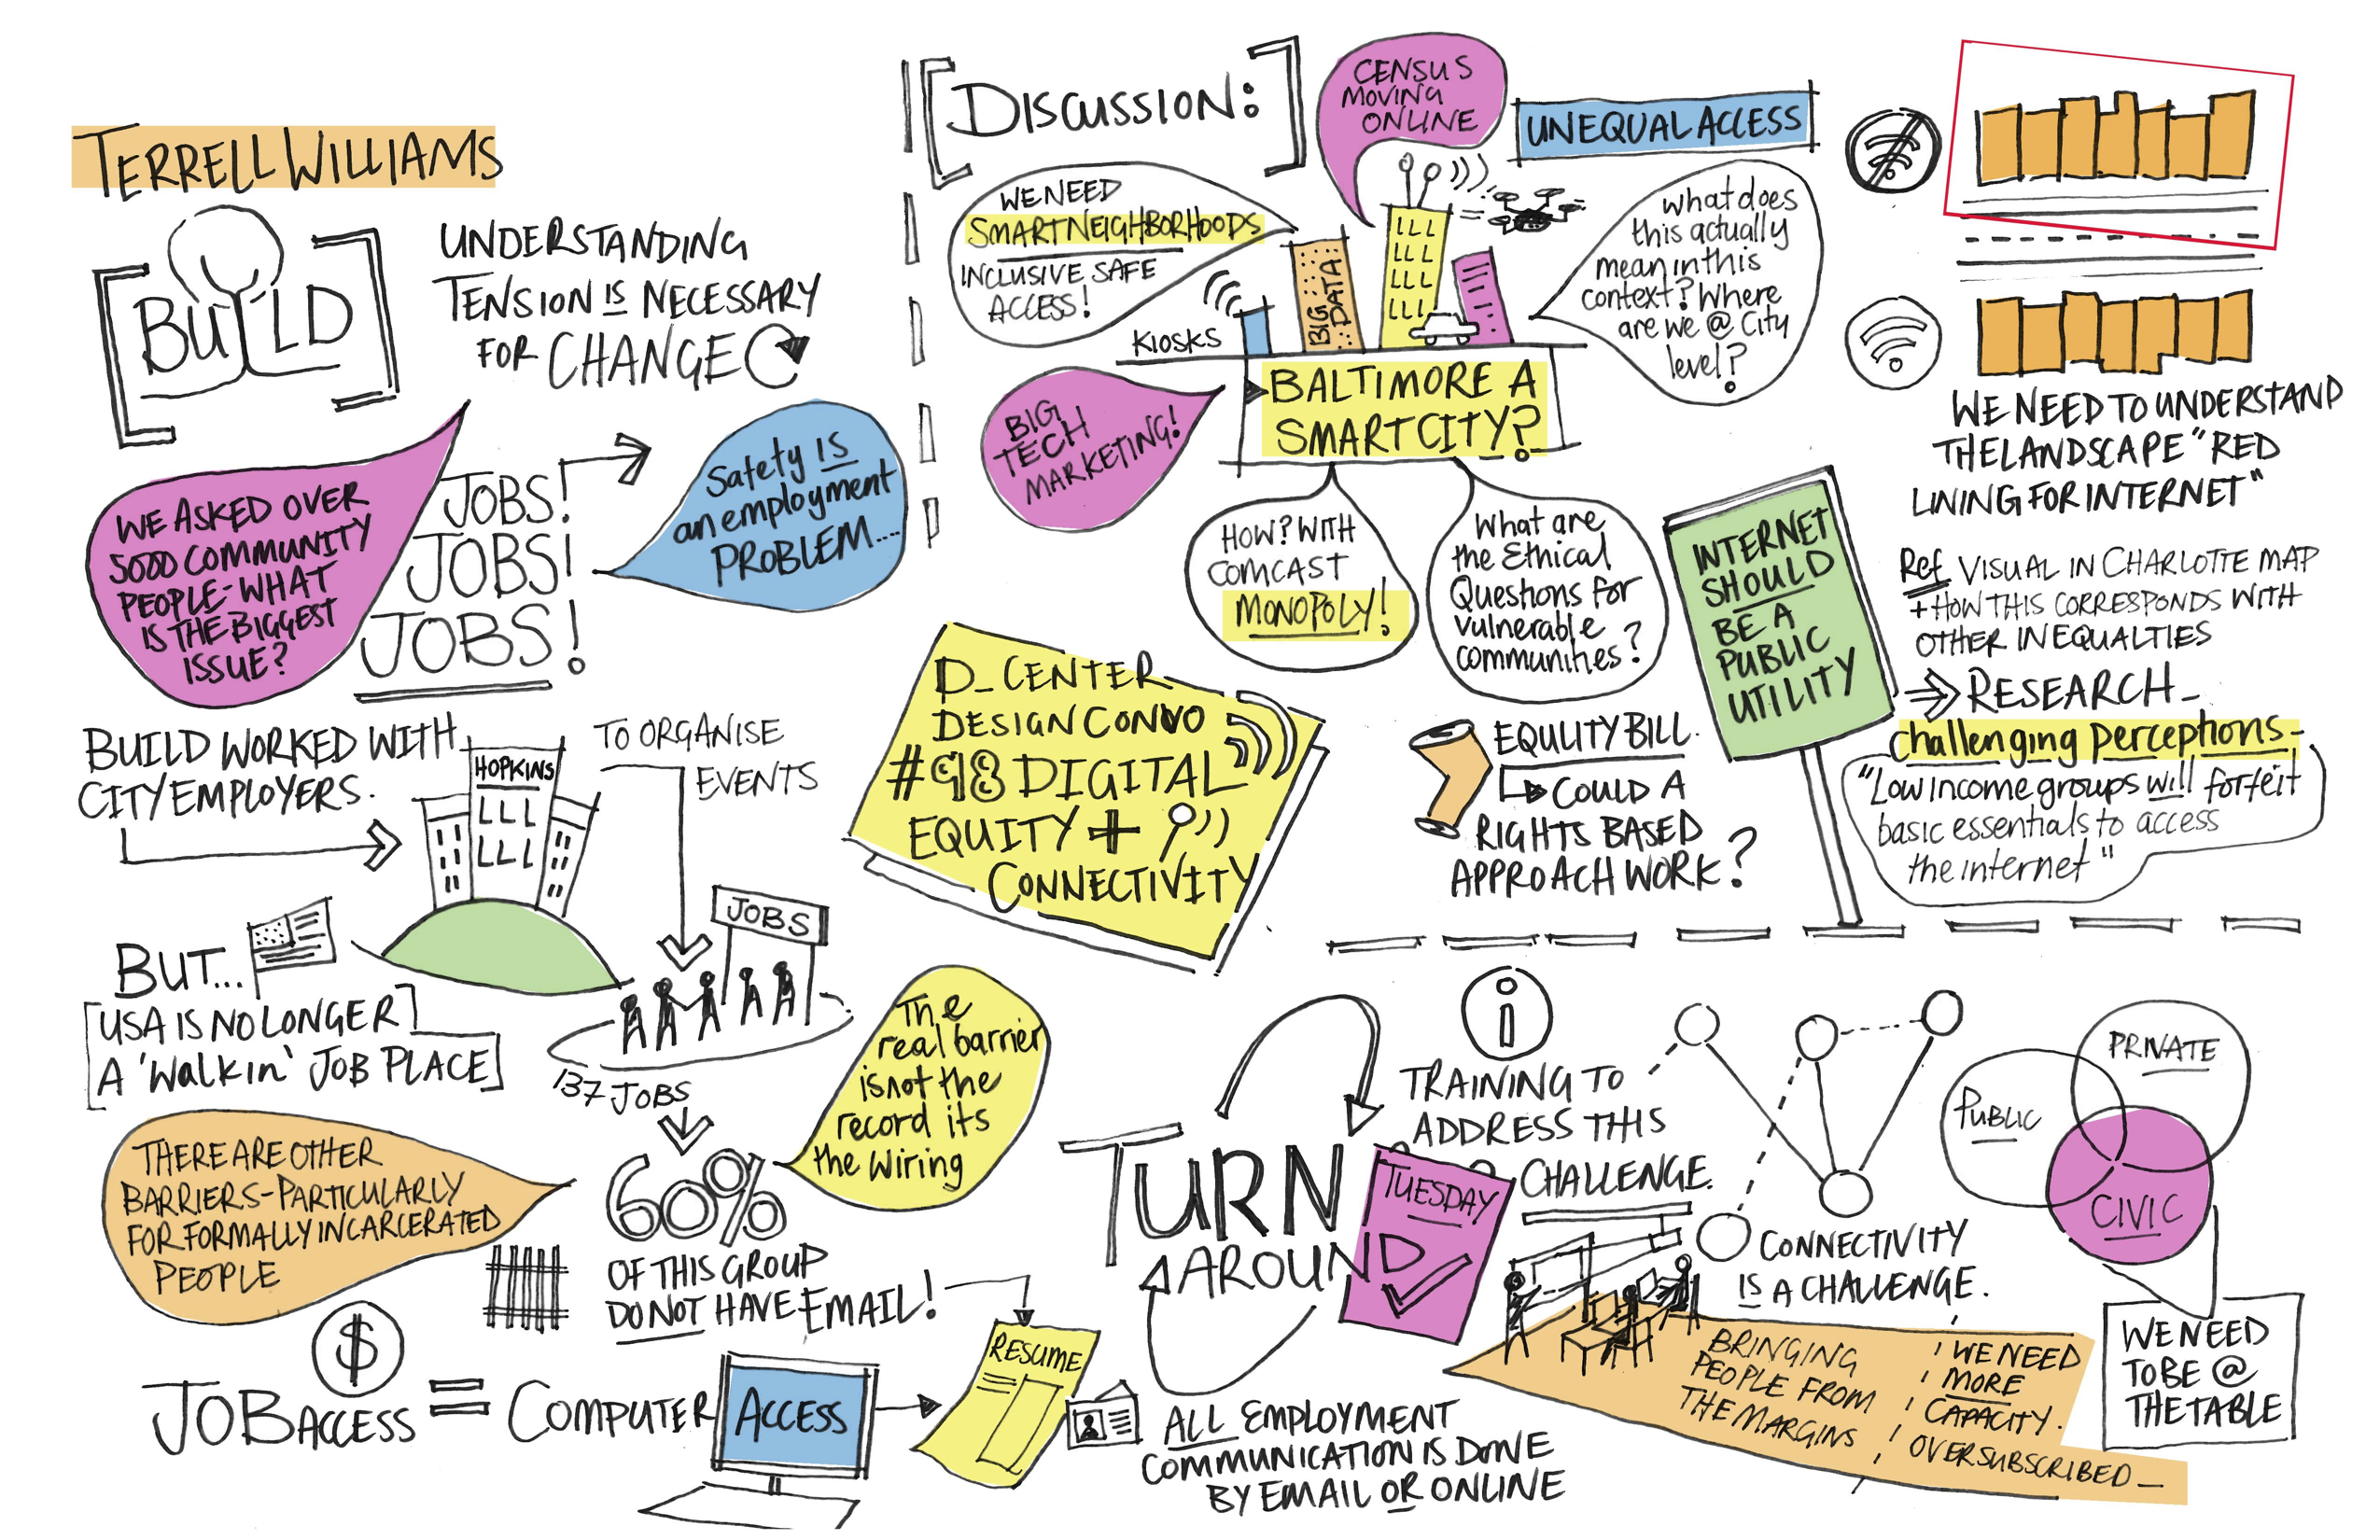 TERRELL WILLIAMS
BUILD
UNDERSTANDING
TENSION IS NECESSARY
FOR CHANGE
WE ASKED OVER
5000 COMMUNITY
PEOPLE-WHAT
IS THE BIGGEST
ISSUE?
JOBS!
JOBS!
JOBS!
Safety IS
an employment
PROBLEM....
BUILD WORKED WITH
CITY EMPLOYERS.
HOPKINS
TO ORGANISE
EVENTS
JOBS
BUT...
USA IS NO LONGER
A 'Walkin' JOB PLACE
137 JOBS
THERE ARE OTHER
BARRIERS-PARTICULARLY
FOR FORMALLY INCARCERATED
PEOPLE
60%
OF THIS GROUP
DO NOT HAVE EMAIL!
The
real barrier
is not the
record its
the Wiring
$
JOB ACCESS = COMPUTER ACCESS
RESUME
ALL EMPLOYMENT
COMMUNICATION IS DONE
BY EMAIL OR ONLINE
D_CENTER
DESIGN CONVO
#98 DIGITAL
EQUITY +
CONNECTIVITY
DISCUSSION:
CENSUS
MOVING
ONLINE
UNEQUAL ACCESS
WE NEED
SMART NEIGHBORHOODS
INCLUSIVE SAFE
ACCESS!
KIOSKS
BIG
DATA
What does
this actually
mean in this
context? Where
are we @ City
level?
BIG
TECH
MARKETING!
BALTIMORE A
SMART CITY?
HOW? WITH
COMCAST
MONOPOLY!
What are
the Ethical
Questions for
vulnerable
communities?
WE NEED TO UNDERSTAND
THE LANDSCAPE "RED
LINING FOR INTERNET"
Ref VISUAL IN CHARLOTTE MAP
+ HOW THIS CORRESPONDS WITH
OTHER INEQUALTIES
INTERNET
SHOULD
BE A
PUBLIC
UTILITY
RESEARCH_
Challenging perceptions_
"Low income groups will forfeit
basic essentials to access
the internet"
EQUILITY BILL.
COULD A
RIGHTS BASED
APPROACH WORK?
TURN
AROUND
TUESDAY
i
TRAINING TO
ADDRESS THIS
CHALLENGE.
CONNECTIVITY
IS A CHALLENGE.
PRIVATE
PUBLIC
CIVIC
WE NEED
TO BE @
THE TABLE
BRINGING
PEOPLE FROM
THE MARGINS
WE NEED
MORE
CAPACITY.
OVERSUBSCRIBED_